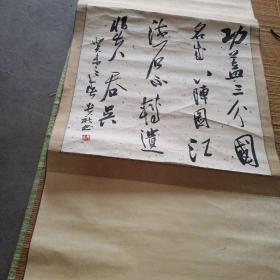 功盖三分國
名成八陣图江
流石不轉遺
恨失吞吴